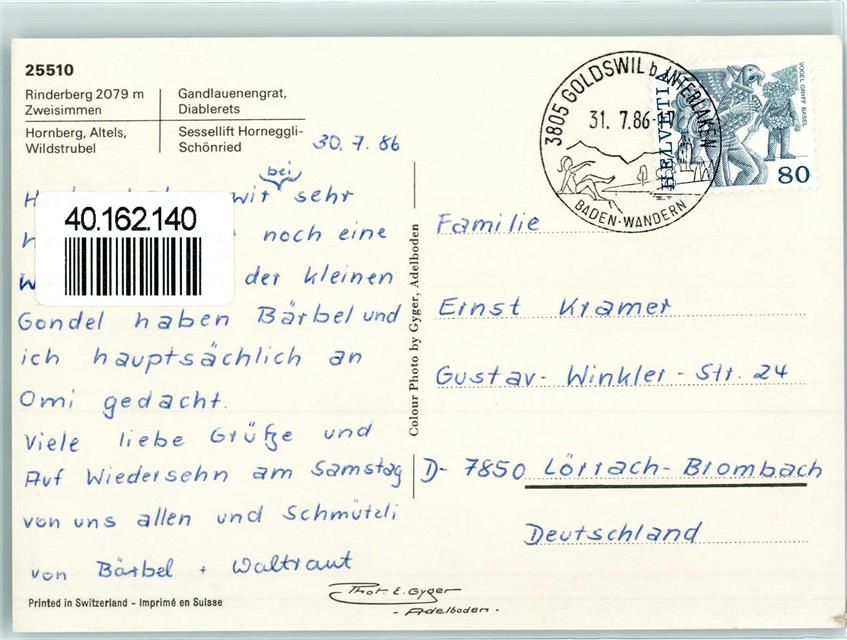 25510
Rinderberg 2079 m
Zweisimmen
Gandlauenengrat,
Diablerets
Hornberg, Altels,
Wildstrubel
Sessellift Horneggli-
Schönried
30.7.86
bei
wir sehr
noch eine
der kleinen
Gondel haben Bärbel und
ich hauptsächlich an
Omi gedacht.
Viele liebe Grüße und
Auf Wiedersehn am Samstag
von uns allen und Schmützli
von Bärbel + Waltraut
40.162.140
Printed in Switzerland - Imprimé en Suisse
Colour Photo by Gyger, Adelboden
Phot. E. Gyger
- Adelboden -
3805 GOLDSWIL b. INTERLAKEN
31. 7.86-17
BADEN-WANDERN
HELVETIA
VOGEL GRYFF BASEL
80
Familie
Ernst Kramer
Gustav-Winkler-Str. 24
D-7850 Lörrach-Brombach
Deutschland